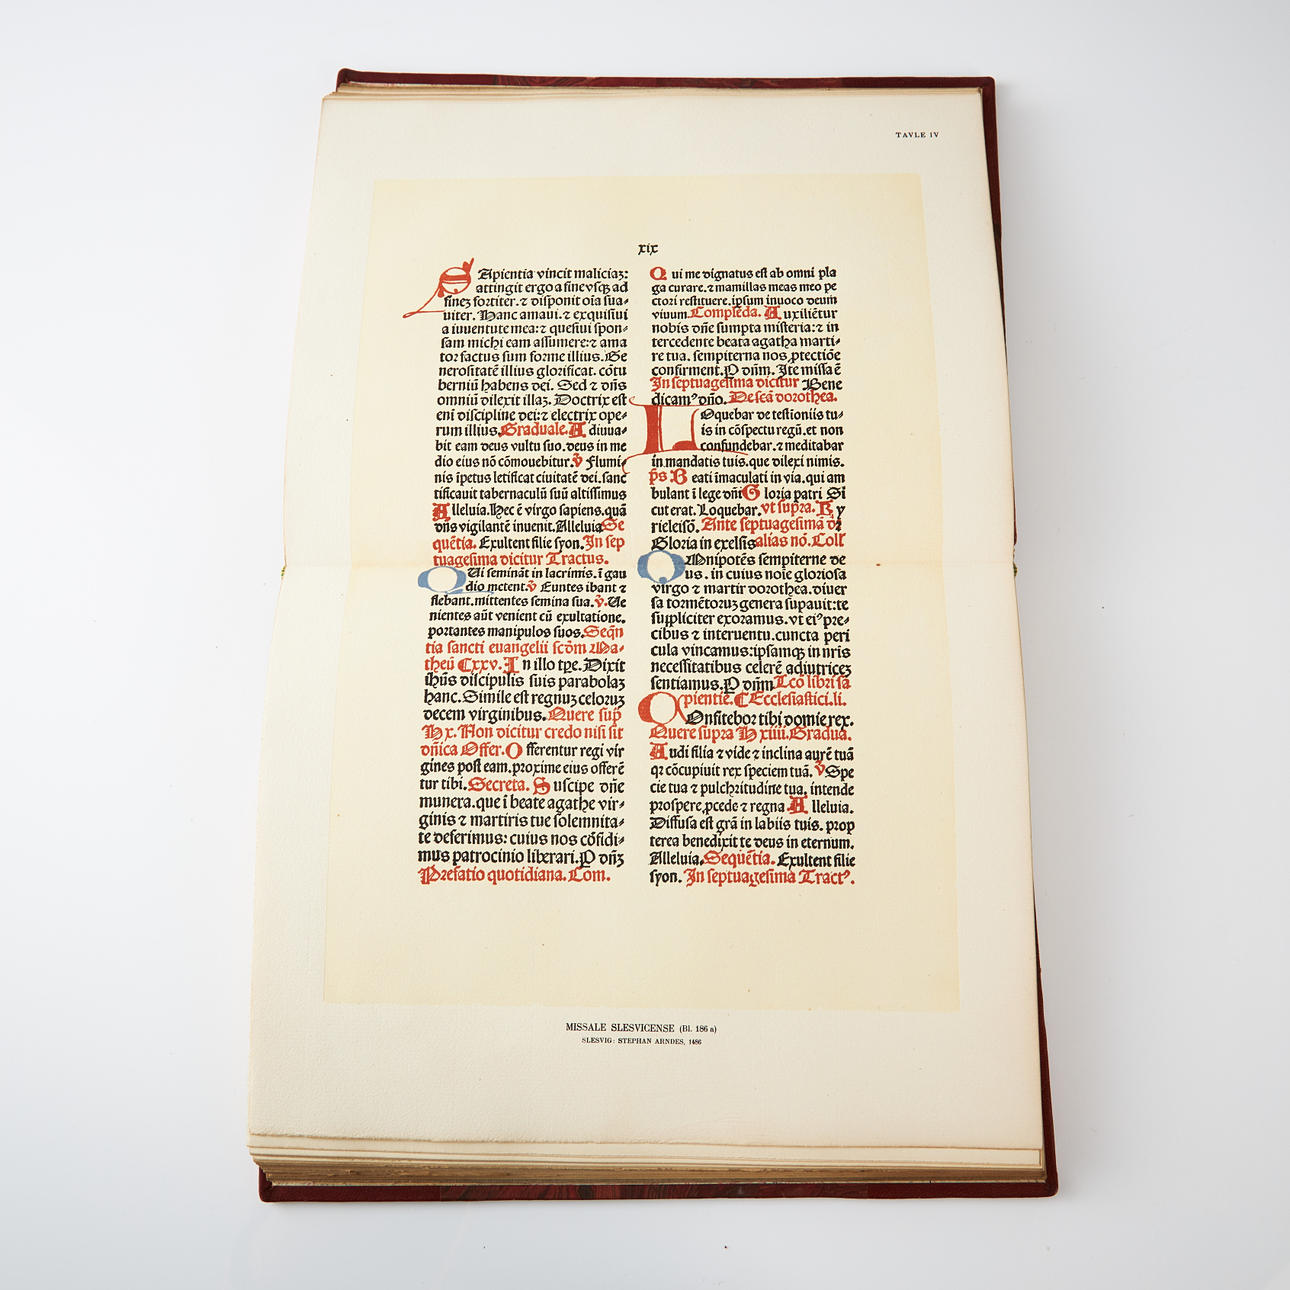 TAVLE IV
xix
Sapientia vincit maliciaꝫ:
attingit ergo a fine vsqꝫ ad
fineꝫ fortiter. ⁊ disponit oīa sua⸗
uiter. Hanc amaui. ⁊ exquisiui
a iuuentute mea: ⁊ quesiui spon⸗
sam michi eam assumere: ⁊ ama
tor factus sum forme illius. Ge
nerositatē illius glorificat. cōtu
berniū habens dei. Sed ⁊ dn̄s
omniū dilexit illaꝫ. Doctrix est
eni discipline dei: ⁊ electrix ope⸗
rum illius. Graduale. A diuua⸗
bit eam deus vultu suo. deus in me
dio eius nō cōmouebitur. v̄ Flumi⸗
nis īpetus letificat ciuitatē dei. sanc
tificauit tabernaculū suū altissimus
Alleluia. Hec ē virgo sapiens. quā
dn̄s vigilantē inuenit. Alleluia Se
quētia. Exultent filie syon. In sep
tuagesima dicitur Tractus.
QUi semināt in lacrimis. ī gau
dio metent. v̄ Euntes ibant ⁊
flebant. mittentes semina sua. v̄. Ue
nientes aūt venient cū exultatione.
portantes manipulos suos. Seqn̄
tia sancti euangelii scōm Ma⸗
theū Cxxv. In illo tꝑe. Dixit
ihūs discipulis suis parabolaꝫ
hanc. Simile est regnuꝫ celoruꝫ
decem virginibus. Quere sup̄
H x. Non dicitur credo nisi sit
dn̄ica Offer. Offerentur regi vir
gines post eam. proxime eius offerē
tur tibi. Secreta. Suscipe dn̄e
munera. que ī beate agathe vir⸗
ginis ⁊ martiris tue solemnita⸗
te deferimus: cuius nos cōfidi⸗
mus patrocinio liberari. P dn̄ꝫ
Prefatio quotidiana. Com.
Qui me dignatus est ab omni pla
ga curare. ⁊ mamillas meas meo pe
ctori restituere. ipsum inuoco deum
viuum. Complēda. Auxiliētur
nobis dn̄e sumpta misteria: ⁊ in
tercedente beata agatha marti⸗
re tua. sempiterna nos ꝓtectiōe
confirment. P dn̄m. Ite missa ē
In septuagesima dicitur Bene
dicamꝰ dn̄o. De scā dorothea.
LOquebar de testioniis tu⸗
is in cōspectu regū. et non
confundebar. ⁊ meditabar
in mandatis tuis. que dilexi nimis.
p̄s. Beati īmaculati in via. qui am
bulant ī lege dn̄i Gloria patri Si
cut erat. Loquebar. vt supra. Ky
rieleisō. Ante septuagesimā dr̄
Gloria in excelsis alias nō. Coll̄
OMnipotēs sempiterne de
us. in cuius noīe gloriosa
virgo ⁊ martir dorothea. diuer
sa tormētoruꝫ genera supauit: te
suppliciter exoramus. vt eiꝰ pre⸗
cibus ⁊ interuentu. cuncta peri
cula vincamus: ipsamqꝫ in nr̄is
necessitatibus celerē adiutriceꝫ
sentiamus. P dn̄m Lco libri sa
pientie. C Ecclesiastici. li.
COnfitebor tibi domie rex.
Quere supra H xiiii. Gradua.
Audi filia ⁊ vide ⁊ inclina aurē tuā
qꝛ cōcupiuit rex speciem tuā. v̄ Spe
cie tua ⁊ pulchritudine tua. intende
prospere ꝓcede ⁊ regna Alleluia.
Diffusa est gr̄a in labiis tuis. prop
terea benedixit te deus in eternum.
Alleluia. Sequētia. Exultent filie
syon. In septuagesima Tractꝰ.
MISSALE SLESVICENSE (Bl. 186 a)
SLESVIG: STEPHAN ARNDES, 1486